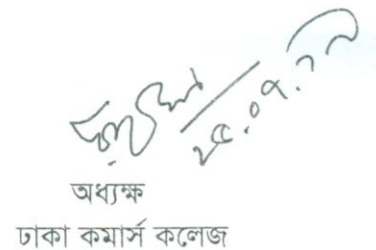 ২৫.০৭.১৭
অধ্যক্ষ
ঢাকা কমার্স কলেজ